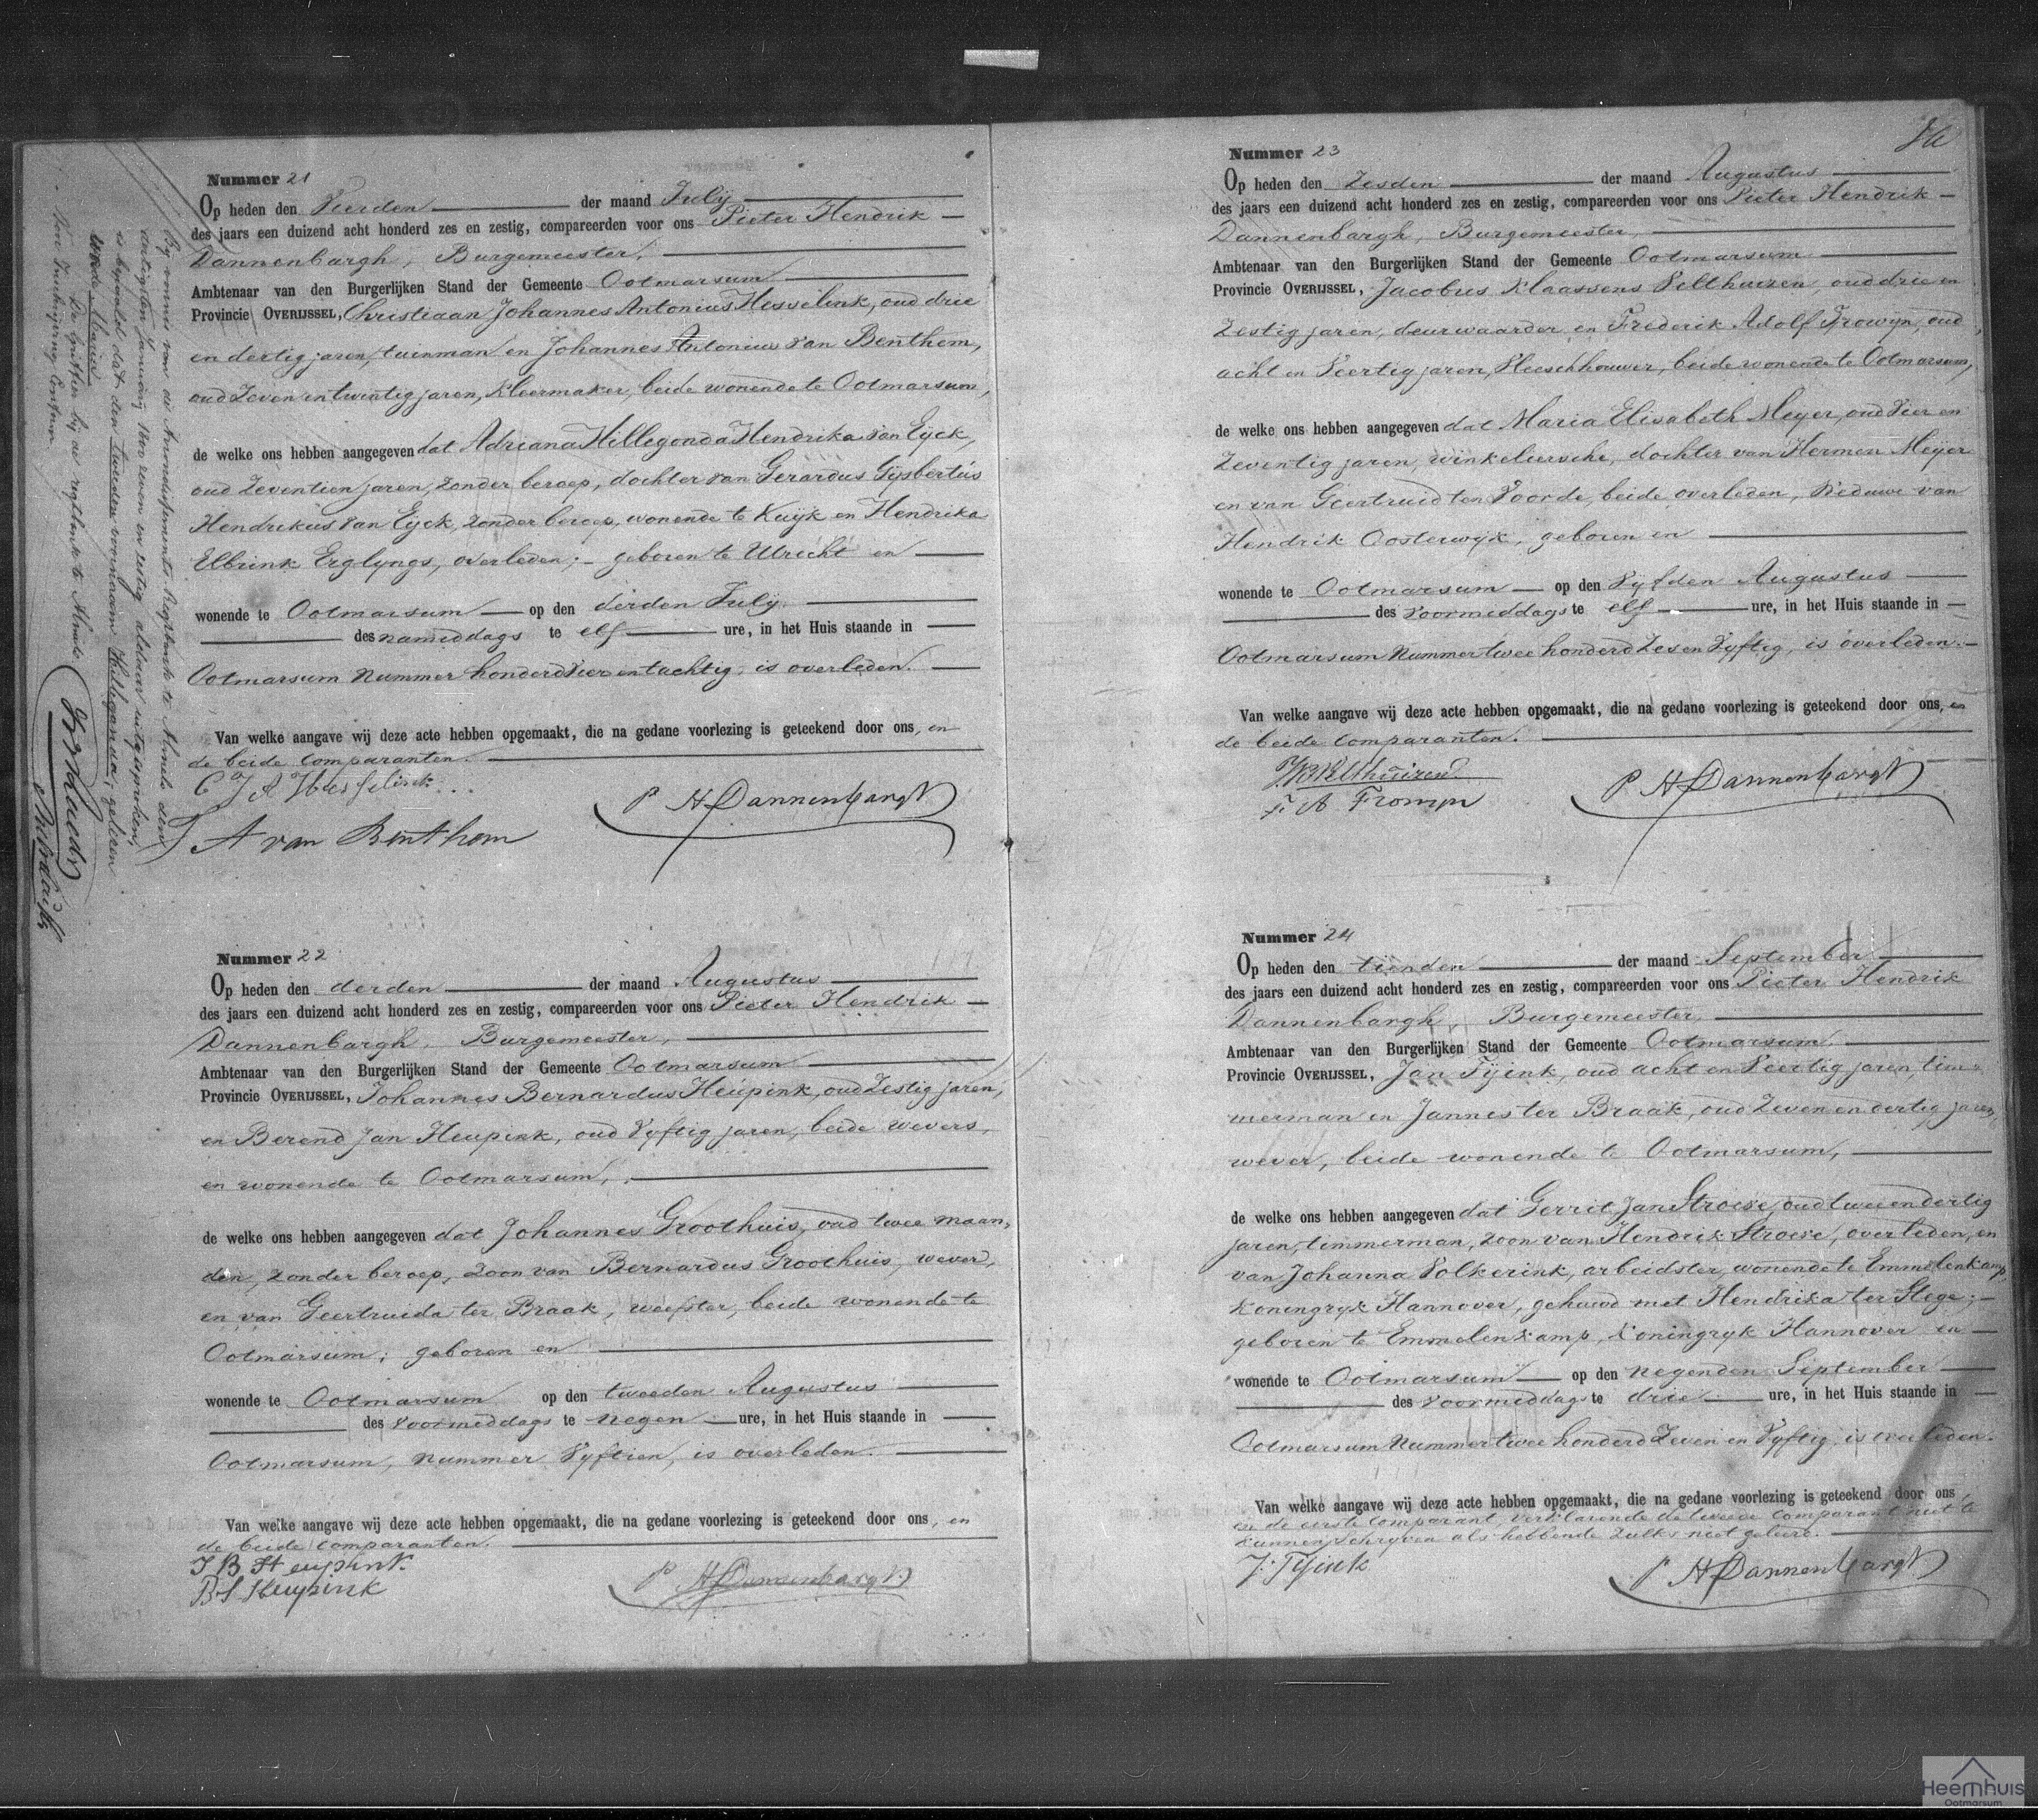 Nummer 21
Op heden den Vierden der maand July
des jaars een duizend acht honderd zes en zestig, compareerden voor ons Pieter Hendrik
Dannenbargh, Burgemeester,
Ambtenaar van den Burgerlijken Stand der Gemeente Ootmarsum
Provincie OVERIJSSEL, Christiaan Johannes Antonius Hesselink, oud drie
en dertig jaren, tuinman en Johannes Antonius van Benthem,
oud Zeven en twintig jaren, Kleermaker, beide wonende te Ootmarsum,
de welke ons hebben aangegeven dat Adriana Hillegonda Hendrika van Eyck,
oud Zeventien jaren, Zonder beroep, dochter van Gerardus Gijsbertus
Hendrikus van Eyck, zonder beroep, wonende te Kuijk en Hendrika
Elbrink Erglyngs, overleden; geboren te Utrecht en
wonende te Ootmarsum op den derden July
des namiddags te elf ure, in het Huis staande in
Ootmarsum Nummer honderd Vier en tachtig, is overleden.
Van welke aangave wij deze acte hebben opgemaakt, die na gedane voorlezing is geteekend door ons, en
de beide comparanten.
C J A Hesselink
J A van Benthem
P H Dannenbargh
By vonnis van de Arrondissements-Regtbank te Almelo den
Januarij 1800 zeven en zestig aldaar uitgesproken,
is bepaald dat den tweeden voornaam Hillegonda, gelezen
worde Maria
De Griffier bij de regtbank te Almelo
Nummer 22
Op heden den derden der maand Augustus
des jaars een duizend acht honderd zes en zestig, compareerden voor ons Pieter Hendrik
Dannenbargh, Burgemeester,
Ambtenaar van den Burgerlijken Stand der Gemeente Ootmarsum
Provincie OVERIJSSEL, Johannes Bernardus Heupink, oud Zestig jaren,
en Berend Jan Heupink, oud Vyftig jaren, beide wevers,
en wonende te Ootmarsum,
de welke ons hebben aangegeven dat Johannes Groothuis, oud twee maan-
den, zonder beroep, Zoon van Bernardus Groothuis, wever,
en van Geertruida ter Braak, weefster, beide wonende te
Ootmarsum; geboren en
wonende te Ootmarsum op den tweeden Augustus
des Voormiddags te negen ure, in het Huis staande in
Ootmarsum, Nummer Vyftien, is overleden.
Van welke aangave wij deze acte hebben opgemaakt, die na gedane voorlezing is geteekend door ons, en
de beide comparanten.
J B Heupink
B J Heupink
P H Dannenbargh
Nummer 23
Op heden den Zesden der maand Augustus
des jaars een duizend acht honderd zes en zestig, compareerden voor ons Pieter Hendrik
Dannenbargh, Burgemeester,
Ambtenaar van den Burgerlijken Stand der Gemeente Ootmarsum
Provincie OVERIJSSEL, Jacobus Klaassens Velthuizen, oud drie en
Zestig jaren, deurwaarder en Frederik Adolf Frowijn, oud
acht en Veertig jaren, Vleeschhouwer, beide wonende te Ootmarsum,
de welke ons hebben aangegeven dat Maria Elisabeth Meyer, oud Vier en
Zeventig jaren, winkeliersche, dochter van Hermen Meijer
en van Geertruid ten Voorde, beide overleden, Weduwe van
Hendrik Oosterwyk, geboren en
wonende te Ootmarsum op den Vyfden Augustus
des Voormiddags te elf ure, in het Huis staande in
Ootmarsum Nummer twee honderd Zes en Vyftig, is overleden.
Van welke aangave wij deze acte hebben opgemaakt, die na gedane voorlezing is geteekend door ons, en
de beide comparanten.
J.K. Velthuizen
F. A. Fromyn
P H Dannenbargh
Nummer 24
Op heden den tienden der maand September
des jaars een duizend acht honderd zes en zestig, compareerden voor ons Pieter Hendrik
Dannenbargh, Burgemeester,
Ambtenaar van den Burgerlijken Stand der Gemeente Ootmarsum
Provincie OVERIJSSEL, Jan Tijink, oud acht en Veertig jaren, tim-
merman en Jannes ter Braak, oud Zeven en dertig jaren,
wever, beide wonende te Ootmarsum,
de welke ons hebben aangegeven dat Gerrit Jan Stroeve, oud twee en dertig
jaren, timmerman, zoon van Hendrik Stroeve, overleden, en
van Johanna Volkerink, arbeidster, wonende te Emmelenkamp,
Koningryk Hannover, gehuwd met Hendrika ter Stege;
geboren te Emmelenkamp, Koningryk Hannover en
wonende te Ootmarsum op den negenden September
des Voormiddags te drie ure, in het Huis staande in
Ootmarsum Nummer twee honderd Zeven en Vyftig, is overleden.
Van welke aangave wij deze acte hebben opgemaakt, die na gedane voorlezing is geteekend door ons
en de eerste Comparant, verklarende de tweede comparant niet te
kunnen schrijven als hebbende zulks niet geleerd.
J. Tijink
P H Dannenbargh
Heemhuis
Ootmarsum